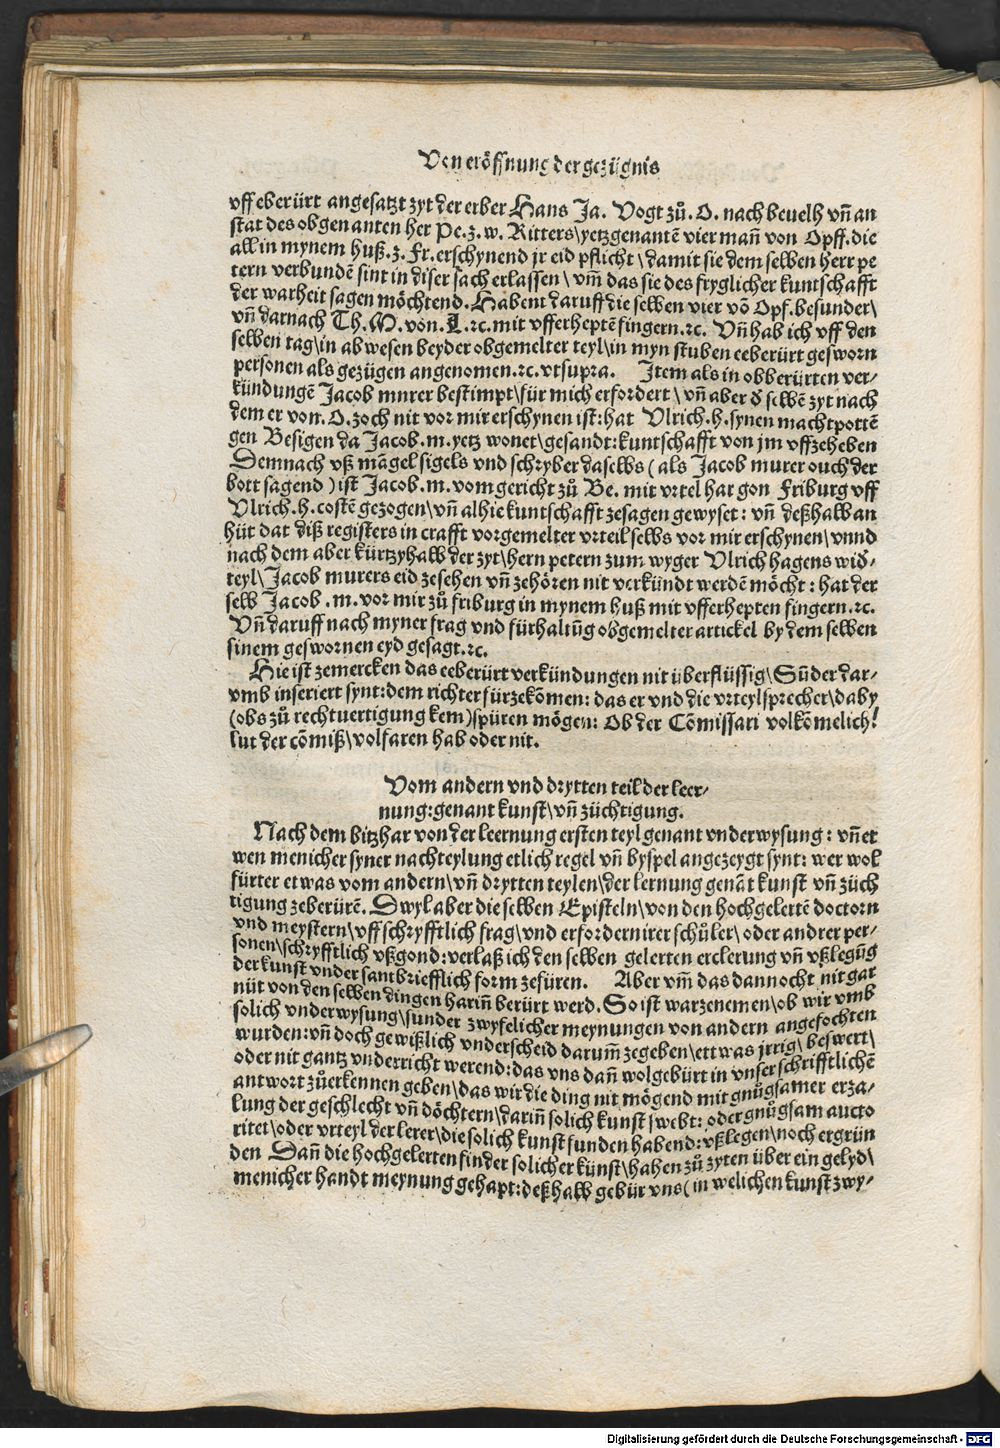 Von eröffnung der gezügnis
vff eberürt angesatzt zyt der erber Hans Ja. Vogt zů. O. nach beuelh vn̄ an
stat des obgenanten her Pe.z.w. Ritters\yetzgenantē vier man̄ von Opff.die
all in mynem huß.z.Fr.erschynend jr eid pflicht\damit sie dem selben herr pe
tern verbundē sint in diser sach erlassen\vm̄ das sie des fryglicher kuntschafft
der warheit sagen möchtend.Habent daruff die selben vier vō Opf.besunder\
vn̄ darnach Th.M.vōn.L.⁊c.mit vfferheptē fingern.⁊c. Vn̄ hab ich vff den
selben tag\in abwesen beyder obgemelter teyl\in myn stuben eeberürt gesworn
personen als gezügen angenomen.⁊c.vtsupra. Jtem als in obberürten ver⸗
kündungē Jacob murer bestimpt\für mich erfordert\vn̄ aber d̓ selbē zyt nach
dem er von.O.zoch nit vor mir erschynen ist:hat Vlrich.h.synen machtpottē
gen Besigen da Jacob.m.yetz wonet\gesandt:kuntschafft von jm vffzeheben
Demnach vß māgel sigels vnd schryber daselbs(als Jacob murer ouch der
bott sagend)ist Jacob.m.vom gericht zů Be. mit vrtel har gon Friburg vff
Vlrich.h.costē gezogen\vn̄ alhie kuntschafft zesagen gewyset: vn̄ deßhalb an
hüt dat diß registers in crafft vorgemelter vrteil selbs vor mir erschynen\vnnd
nach dem aber kürtzyhalb der zyt\hern petern zum wyger Vlrich hagens wid̓⸗
teyl\Jacob murers eid zesehen vn̄ zehören nit verkündt werdē möcht: hat der
selb Jacob.m.vor mir zů friburg in mynem huß mit vfferhepten fingern.⁊c.
Vn̄ daruff nach myner frag vnd fürhaltūg obgemelter artickel by dem selben
sinem geswornen eyd gesagt.⁊c.
Hie ist zemercken das eeberürt verkündungen nit überflüssig\Sūder dar⸗
vmb inseriert synt:dem richter fürzekōmen: das er vnd die vrteylsprecher\daby
(obs zů rechtuertigung kem)spüren mögen: Ob der Cōmissari volkōmelich!
lut der cōmiß\volfaren hab oder nit.
Vom andern vnd drytten teil der leer⸗
nung:genant kunst\vn̄ züchtigung.
Nach dem bitzhar von der leernung ersten teyl genant vnderwysung: vn̄ et
wen menicher syner nachteylung etlich regel vn̄ byspel angezeygt synt: wer wol
fürter etwas vom andern\vn̄ drytten teylen\der lernung genāt kunst vn̄ züch
tigung zeberürē. Dwyl aber die selben Episteln\von den hochgelertē doctorn
vnd meystern\vff schryfftlich frag\vnd erfordern irer schůler\oder andrer per⸗
sonen\schryfftlich vßgond:verlaß ich den selben gelerten erclerung vn̄ vßlegūg
der kunst vnder santbriefflich form zefüren. Aber vm̄ das dannocht nit gar
nüt von den selben dingen harin̄ berürt werd.So ist warzenemen\ob wir vmb
solich vnderwysung\sunder zwyfelicher meynungen von andern angefochten
wurden:vn̄ doch gewißlich vnderscheid darum̄ zegeben\ettwas jrrig\beswert\
oder nit gantz vnderricht werend:das vns dan̄ wolgebürt in vnser schrifftlichē
antwort zůerkennen geben\das wir die ding nit mögend mit gnůgsamer erza⸗
lung der geschlecht vn̄ döchtern\darin̄ solich kunst swebt: oder gnůgsam aucto
ritet\oder vrteyl der lerer\die solich kunst funden habend:vßlegen\noch ergrün
den Dan̄ die hochgelerten finder solicher künst\haben zů zyten über ein gelyd\
menicher handt meynung gehapt:deßhalb gebür vns(in welichen kunst zwy⸗
Digitalisierung gefördert durch die Deutsche Forschungsgemeinschaft - DFG